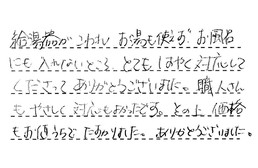 給湯器がこわれ お湯も使えず お風呂
にも 入れないところ とても はやく 対応して
くださって ありがとうございました。職人さん
も やさしく 対応もよかったです。その上 価格
も お値うちで たすかりました。ありがとうございました。